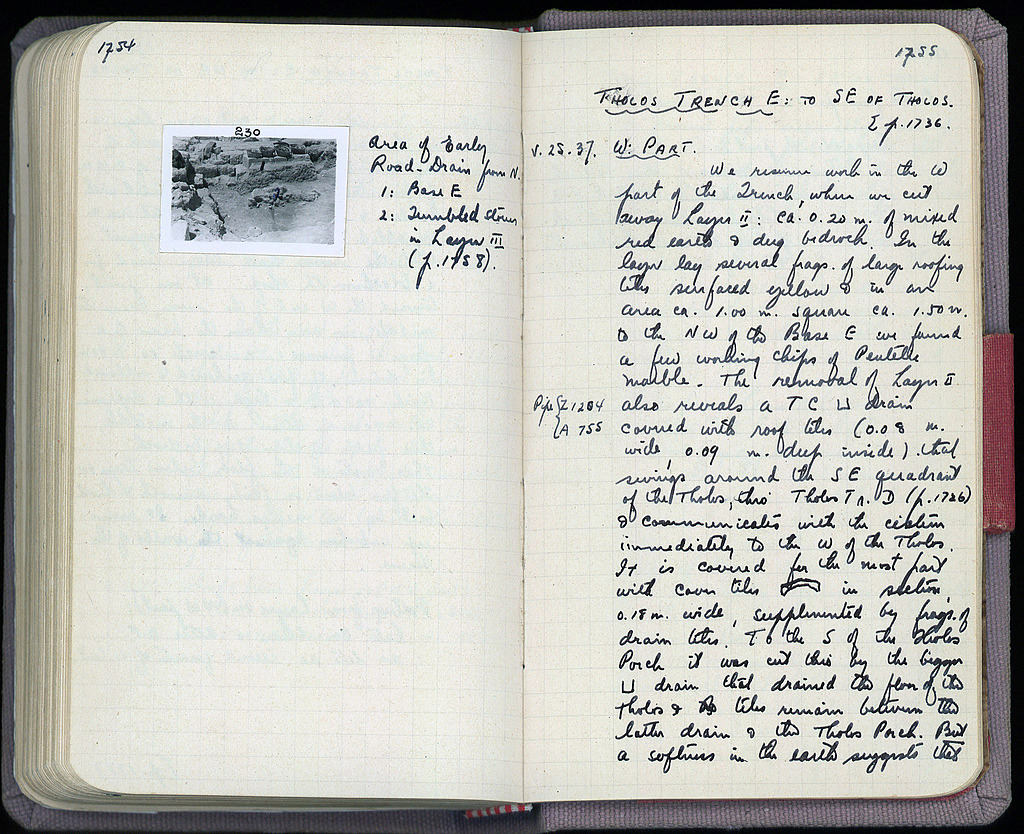 1754
230
Area of Early
Road-Drain from N.
1: Base E
2: Tumbled stones
in Layer III
(p. 1758).
1755
THOLOS TRENCH E: TO SE OF THOLOS.
Σ p. 1736.
V. 25. 37. W: PART.
We resume work in the W
part of the Trench, where we cut
away Layer II: ca. 0.20 m. of mixed
red earth & dug bedrock. In the
layer lay several frags. of large roofing
tiles surfaced yellow & in an
area ca. 1.00 m. square ca. 1.50 m.
to the NW of the Base E we found
a few working chips of Pentelic
marble. The removal of Layer II
Pipe {Z 1204 also reveals a TC ⊔ drain
{A 755 covered with roof tiles (0.08 m.
wide, 0.09 m. deep inside) that
swings around the SE quadrant
of the Tholos, thro' Tholos Tr. D (p. 1726)
& communicates with the cistern
immediately to the W of the Tholos.
It is covered for the most part
with cover tiles in section,
0.18 m. wide, supplemented by frags. of
drain tiles. To the S of the Tholos
Porch it was cut thro by the bigger
⊔ drain that drained the floor of the
Tholos & no tiles remain between the
latter drain & the Tholos Porch. But
a softness in the earth suggests that